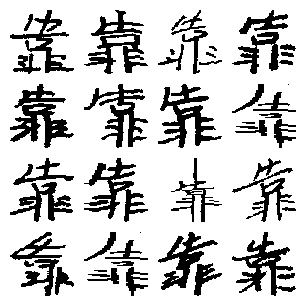 靠靠靠靠
靠靠靠靠
靠靠靠靠
靠靠靠靠